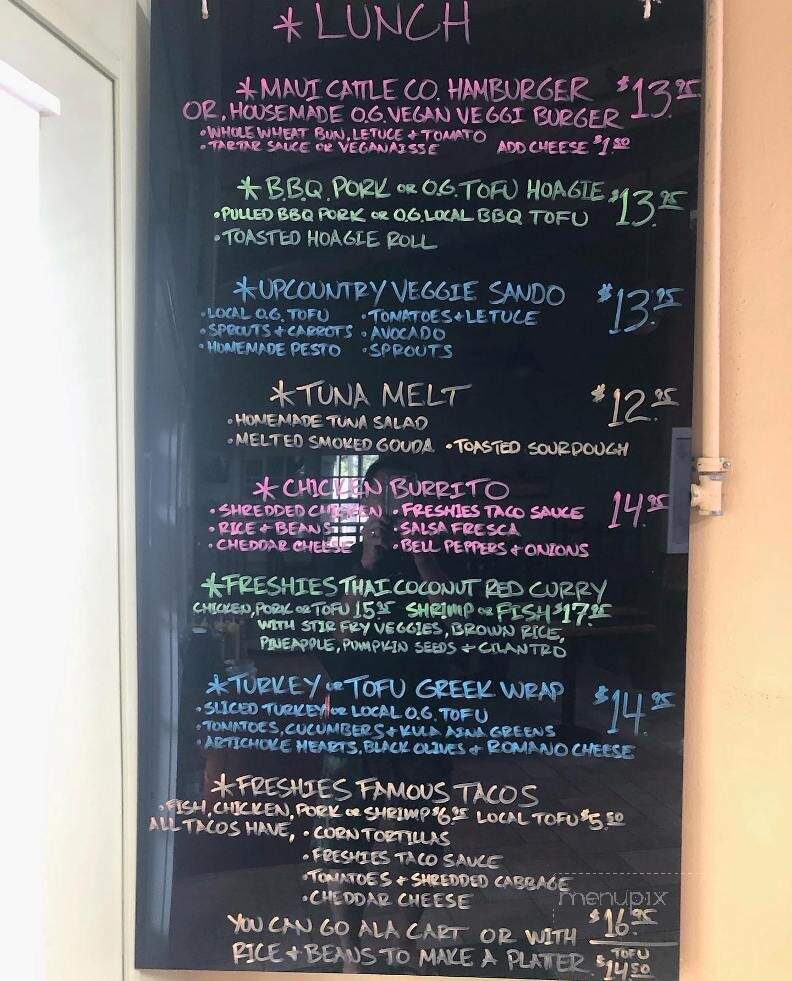 *LUNCH
*MAUI CATTLE CO. HAMBURGER $13.95
OR, HOUSEMADE O.G. VEGAN VEGGI BURGER
•WHOLE WHEAT BUN, LETUCE + TOMATO
•TARTAR SAUCE OR VEGANAISSE ADD CHEESE $1.50
*B.B.Q. PORK OR O.G. TOFU HOAGIE $13.95
•PULLED BBQ PORK OR O.G. LOCAL BBQ TOFU
•TOASTED HOAGIE ROLL
*UPCOUNTRY VEGGIE SANDO $13.95
•LOCAL O.G. TOFU •TOMATOES+LETUCE
•SPROUTS + CARROTS •AVOCADO
•HOMEMADE PESTO •SPROUTS
*TUNA MELT $12.95
•HOMEMADE TUNA SALAD
•MELTED SMOKED GOUDA •TOASTED SOURDOUGH
*CHICKEN BURRITO 14.95
•SHREDDED CHICKEN •FRESHIES TACO SAUCE
•RICE + BEANS •SALSA FRESCA
•CHEDDAR CHEESE •BELL PEPPERS + ONIONS
*FRESHIES THAI COCONUT RED CURRY
CHICKEN, PORK OR TOFU 15.95 SHRIMP OR FISH $17.95
WITH STIR FRY VEGGIES, BROWN RICE,
PINEAPPLE, PUMPKIN SEEDS + CILANTRO
*TURKEY OR TOFU GREEK WRAP $14.95
•SLICED TURKEY OR LOCAL O.G. TOFU
•TOMATOES, CUCUMBERS + KULA AINA GREENS
•ARTICHOKE HEARTS, BLACK OLIVES + ROMANO CHEESE
*FRESHIES FAMOUS TACOS
•FISH, CHICKEN, PORK OR SHRIMP $6.95 LOCAL TOFU $5.50
ALL TACOS HAVE, •CORN TORTILLAS
•FRESHIES TACO SAUCE
•TOMATOES + SHREDDED CABBAGE
•CHEDDAR CHEESE
menupix
YOU CAN GO ALA CART OR WITH $16.95
RICE + BEANS TO MAKE A PLATTER. TOFU $14.50